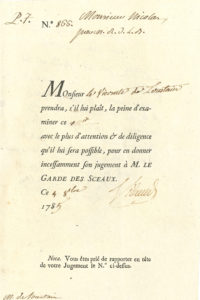 P. T. N.° 866. Monsieur Nicolas,
Monsieur le Vicomte de
prendra, s'il lui plaît, la peine d'exa-
miner ce
avec le plus d'attention & de diligence
qu'il lui sera possible, pour en donner
incessamment son jugement à M. LE
GARDE DES SCEAUX.
Ce 4 8bre
1785
Nota. Vous êtes prié de rapporter en tête
de votre Jugement le N.° ci-dessus.